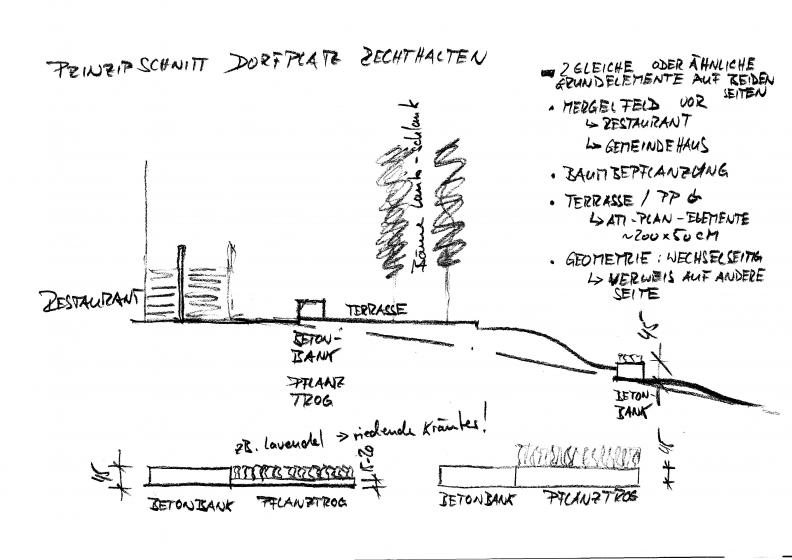 PRINZIPSCHNITT DORFPLATZ RECHTHALTEN
2 GLEICHE ODER ÄHNLICHE
GRUNDELEMENTE AUF BEIDEN
SEITEN
• MERGELFELD VOR
↳ RESTAURANT
↳ GEMEINDEHAUS
• BAUMBEPFLANZUNG
• TERRASSE / PP
↳ ATI-PLAN-ELEMENTE
~200x50 CM
• GEOMETRIE: WECHSELSEITIG
↳ VERWEIS AUF ANDERE
SEITE
Bäume Laub-schlank
RESTAURANT
TERRASSE
BETON-
BANK
PFLANZ
TROG
45
BETON-
BANK
zB. Lavendel → riechende Kräuter!
45
15-20
45
BETONBANK PFLANZTROG
BETONBANK PFLANZTROG